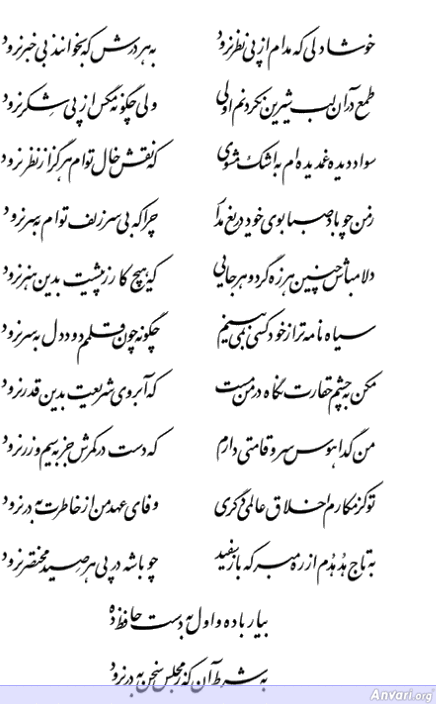 خوشا دلی که مدام از پی نظر نرود به هر درش که بخوانند بی خبر نرود
طمع در آن لب شیرین نکردنم اولی ولی چگونه مگس از پی شکر نرود
سواد دیده غمدیده ام به اشک مشوی که نقش خال توام هرگز از نظر نرود
ز من چو باد صبا بوی خود دریغ مدار چرا که بی سر زلف توام به سر نرود
دلا مباش چنین هرزه گرد و هرجایی که هیچ کار ز پیشت بدین هنر نرود
سیاه نامه تر از خود کسی نمی بینم چگونه چون قلمم دود دل به سر نرود
مکن به چشم حقارت نگاه در من مست که آبروی شریعت بدین قدر نرود
من گدا هوس سروقامتی دارم که دست در کمرش جز به سیم و زر نرود
تو کز مکارم اخلاق عالمی دگری وفای عهد من از خاطرت به در نرود
به تاج هدهدم از ره مبر که باز سفید چو باشه در پی هر صید مختصر نرود
بیار باده و اول به دست حافظ ده
به شرط آن که ز مجلس سخن به در نرود
Anvari.org